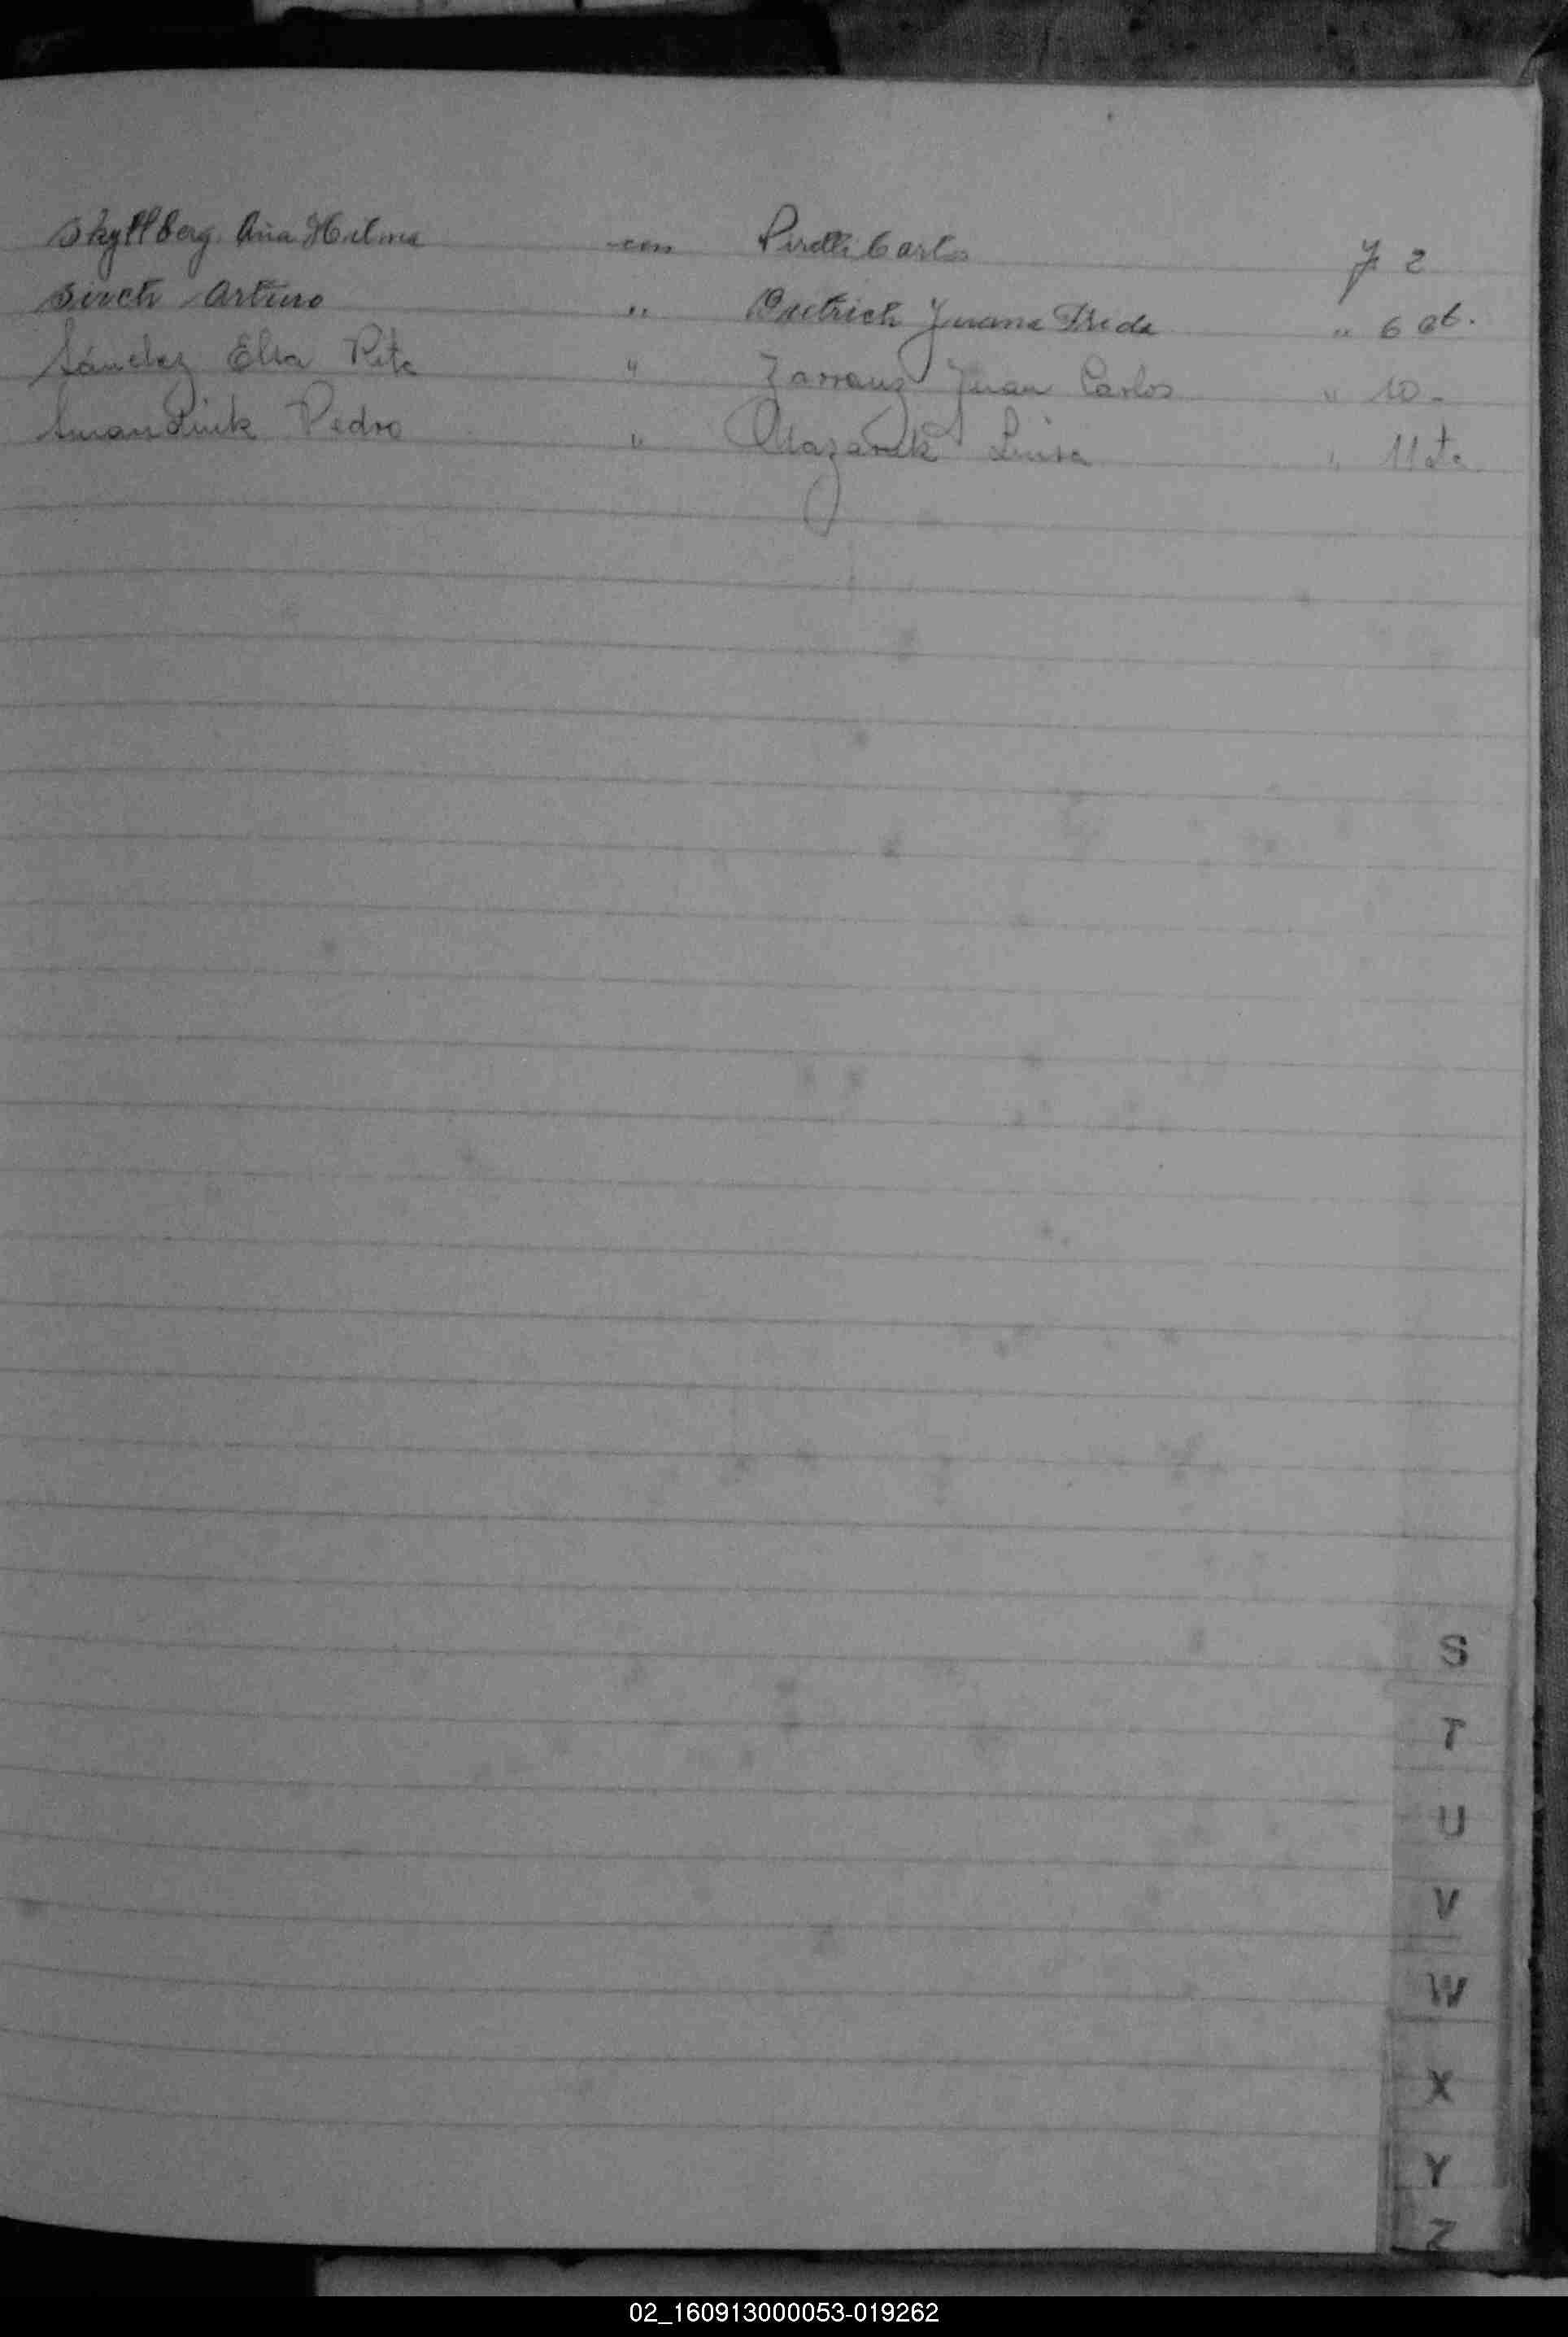 Skyllberg Ana Hilma con Pirelli Carlos f 2
Sirch Arturo " Dietrich Juana Frida " 6 vt.
Sánchez Elsa Rita " Zarranz Juan Carlos " 10-
Pedro " Luisa " 11 vta
S
T
U
V
W
X
Y
Z
02_160913000053-019262